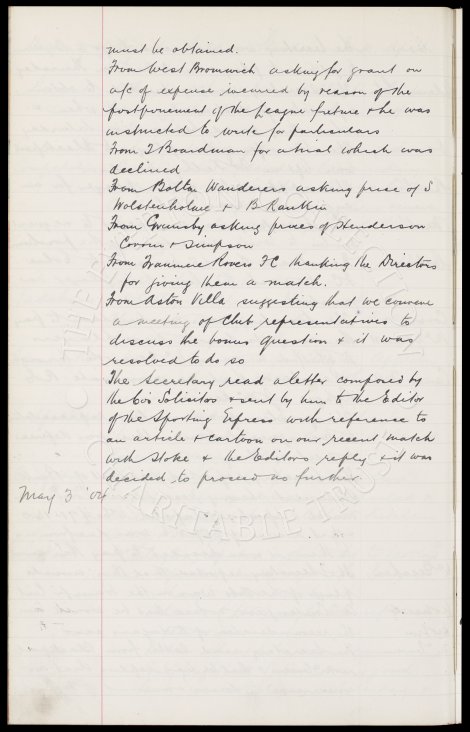 must be obtained.
From West Bromwich asking for grant on
a/c of expense incurred by reason of the
postponement of the League fixture & he was
instructed to write for particulars
From J Boardman for a trial which was
declined
From Bolton Wanderers asking price of S
Wolstenholme & B Rankin
From Grimsby asking prices of Henderson
Corrin & Simpson
From Tranmere Rovers FC thanking the Directors
for giving them a match.
From Aston Villa suggesting that we convene
a meeting of Club representatives to
discuss the bonus question & it was
resolved to do so
The Secretary read a letter composed by
the Co's Solicitos & sent by him to the Editor
of the Sporting Express with reference to
an article & cartoon on our recent match
with Stoke & the Editors reply & it was
decided to proceed no further
May 3 '04
CHARITABLE TRUST